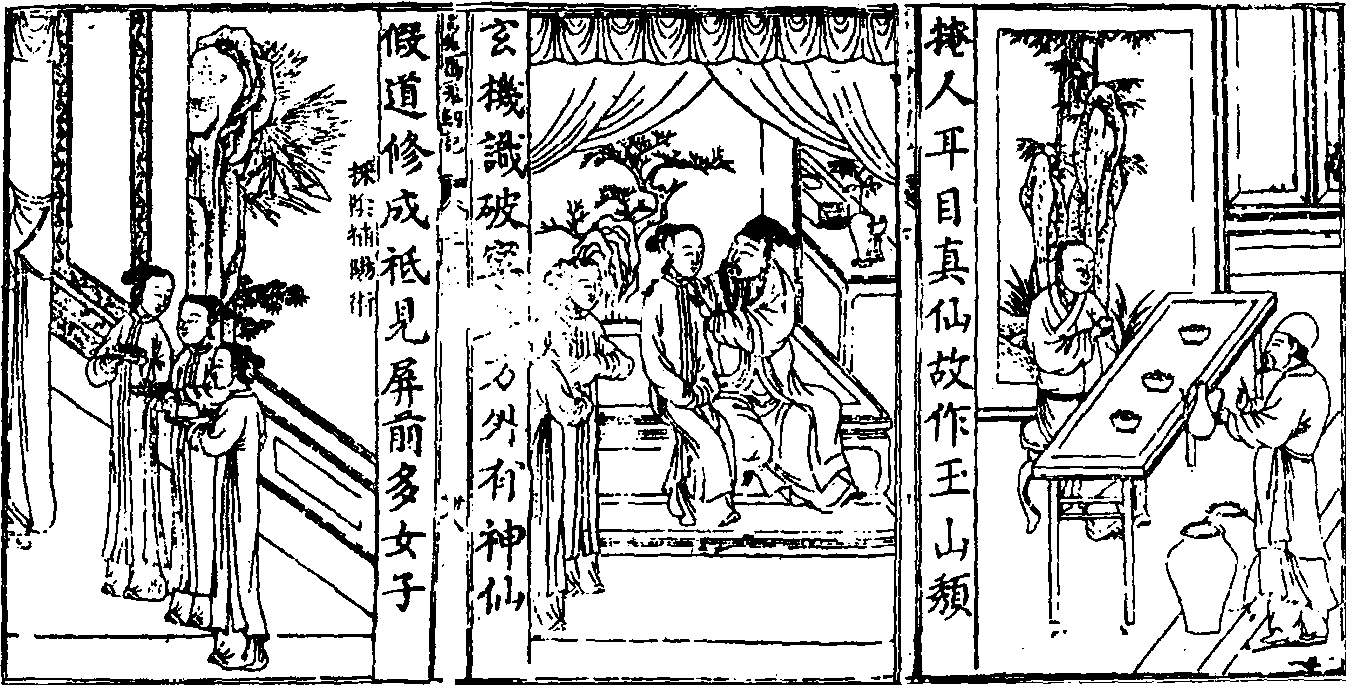 掩人耳目真仙故作玉山頽
玄機識破 方外有神仙
假道修成祗見屏前多女子
採陰補陽術